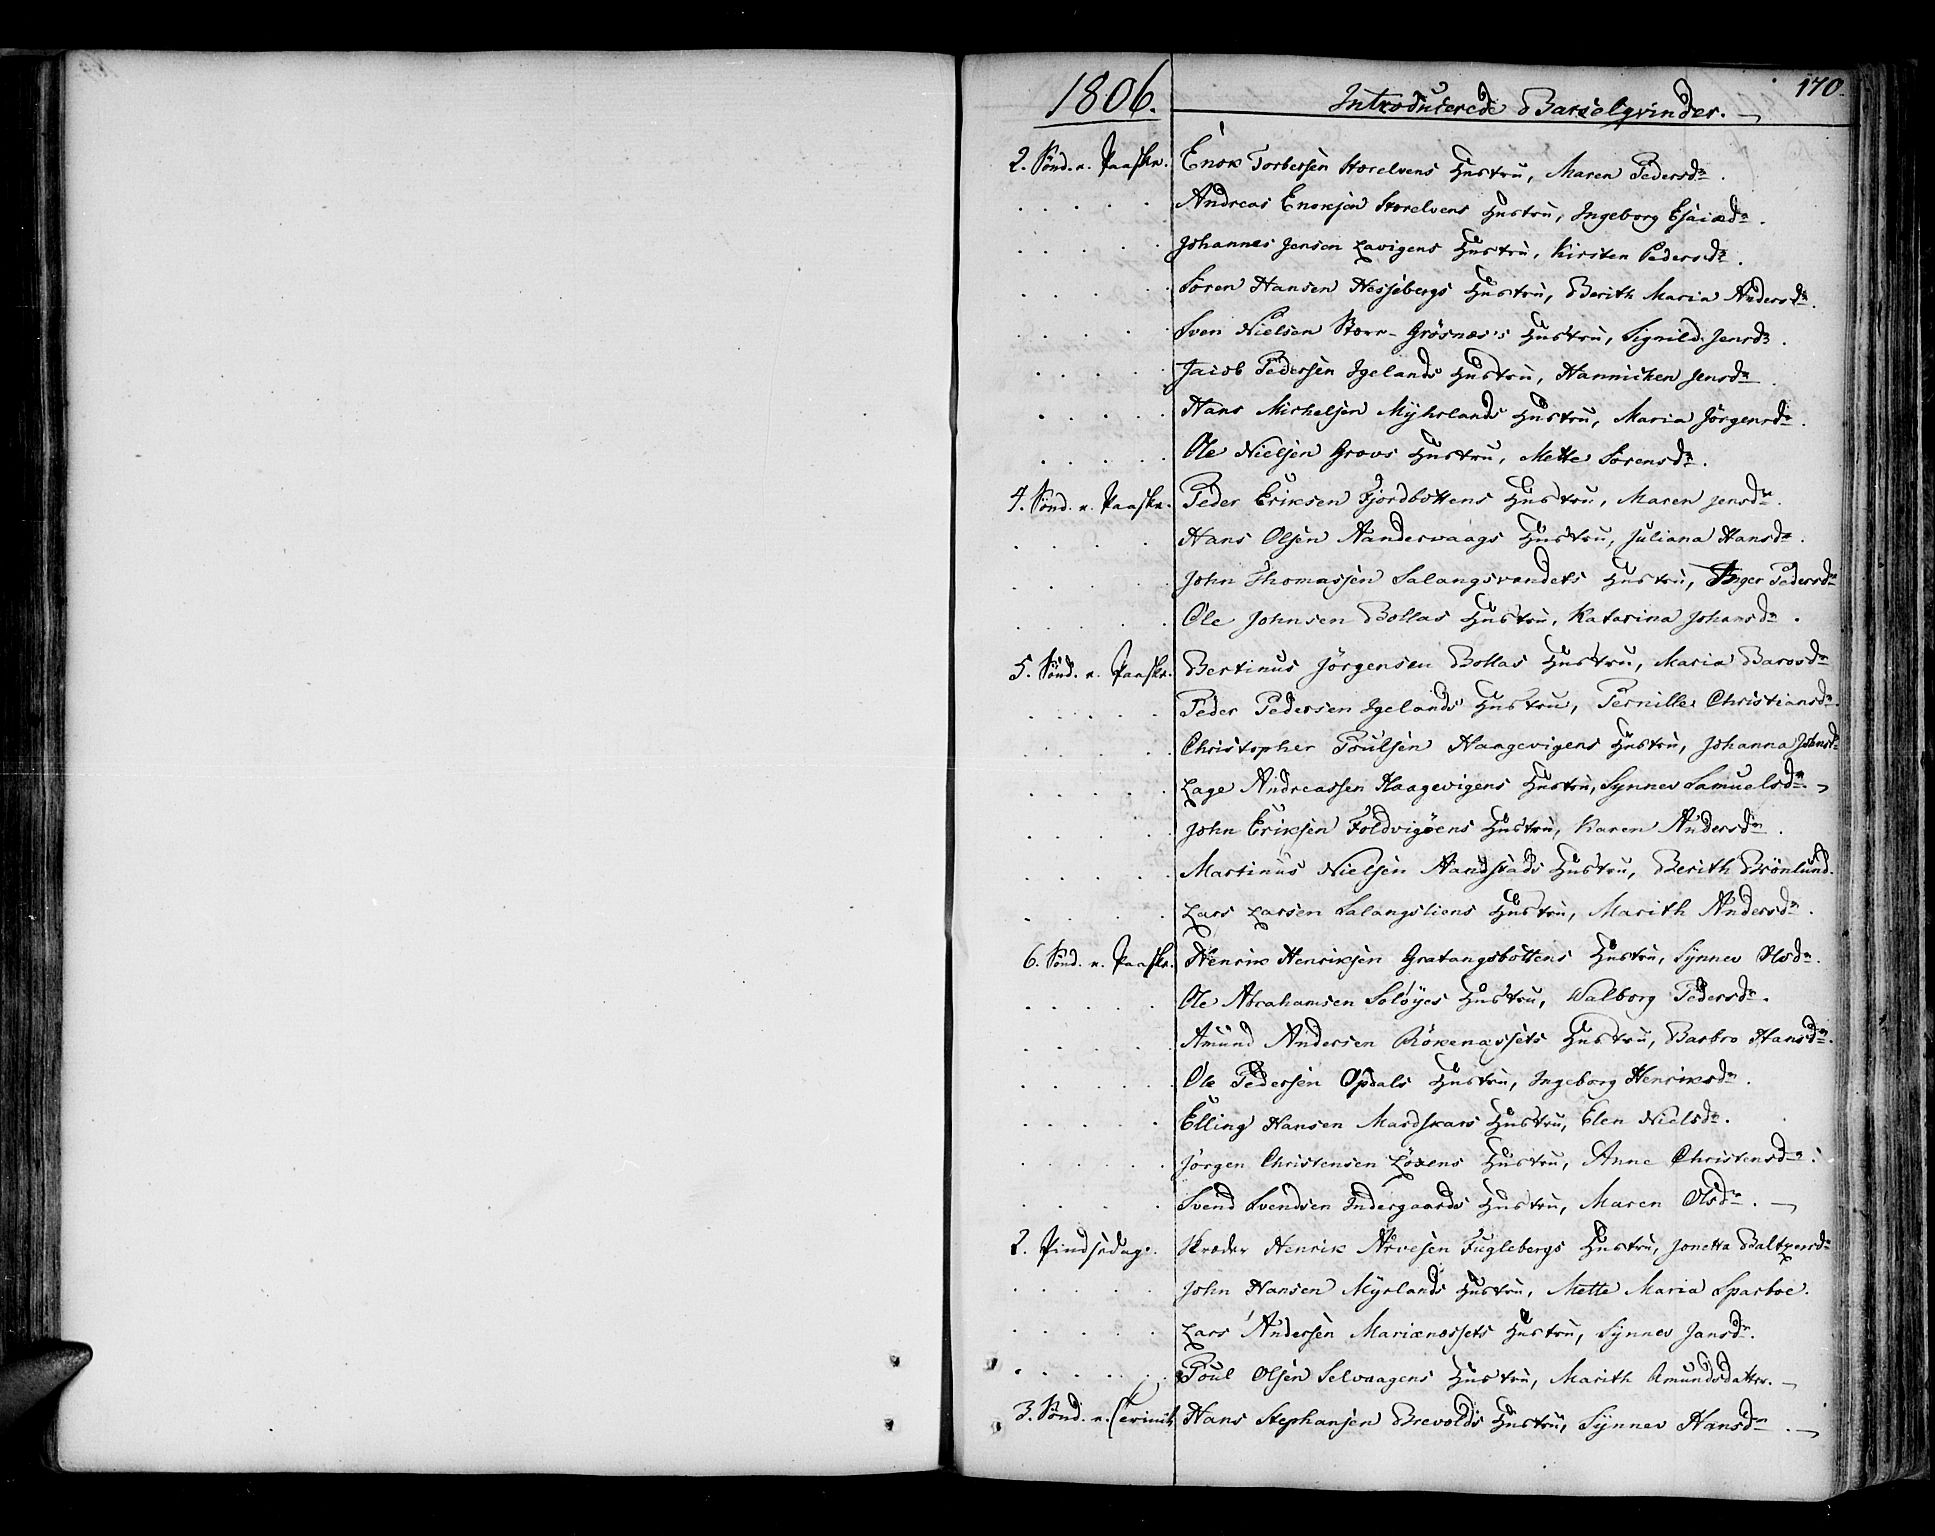 170.
1806. Introducerede Barselqvinder.
2. Sönd. n. Paaske. Enok Torbersen Storelvens Hustru, Maren Pedersdr.
. . . . . Andreas Enoksen Storelvens Hustru, Ingeborg Esaiædr.
. . . . . Johannes Jensen Lavigens Hustru, Kirsten Pedersdr.
. . . . . Sören Hansen Hessebergs Hustru, Berith Maria Andersdr.
. . . . . Sven Nielsen Store-Grösnæs's Hustru, Signild Jensdr.
. . . . . Jacob Pedersen Igelands Hustru, Hannichen Jensdr.
. . . . . Hans Michelsen Myhrlands Hustru, Maria Jörgensdr.
. . . . . Ole Nielsen Grovs Hustru, Mette Sörensdr.
4. Sönd. n. Paaske. Peder Eriksen Fjordbottens Hustru, Maren Jensdr.
. . . . Hans Olsen Aandervaags Hustru, Juliana Hansdr.
. . . . John Thomassen Salangsvandets Hustru, Inger Pedersdr
. . . . . Ole Johnsen Bollas Hustru, Katarina Johansdr.
5. Sönd. n. Paaske. Bertinus Jörgensen Bollas Hustru, Maria Barosdr
. . . . . Peder Pedersen Igelands Hustru, Pernille Christiansdr.
. . . . . Christopher Poulsen Haagevigens Hustru, Johanna Johnsdr
. . . . . Lage Andreassen Haagevigens Hustru, Synnev Samuelsdr.
. . . . . John Eriksen Foldvigöens Hustru, Karen Andersdr.
. . . . . Martinus Nielsen Aandstads Hustru, Berith Brönlund.
. . . . Lars Larsen Salangsliens Hustru, Marith Andersdr.
6. Sönd. n. Paaske. Henrik Henriksen Gratangsbottens Hustru, Synnev Olsdr.
. . . . . Ole Abrahamsen Solöyes Hustru, Walborg Pedersdr.
. . . . . Amund Andersen Rökenæssets Hustru, Barbro Hansdr.
. . . . . Ole Pedersen Opdals Hustru, Ingeborg Henriksdr.
. . . . . Elling Hansen Maadskars Hustru, Elen Nielsdr.
. . . . . Jörgen Christensen Löxens Hustru, Anne Christensdr.
. . . . . Svend Svendsen Indergaards Hustru, Maren Olsdr.
2. Pindsedag. Skræder Henrik Arvesen Fuglebergs Hustru, Jonetta Baltzersdr
. . . . . John Hansen Myrlands Hustru, Mette Maria Sparboe.
. . . . . Lars Andersen Mariænæssets Hustru, Synnev Jansdr.
. . . . . Poul Olsen Selvaagens Hustru, Marith Amundsdatter.
3. Sönd. n. Trinit. Hans Stephansen Brevolds Hustru, Synnev Hansdr.